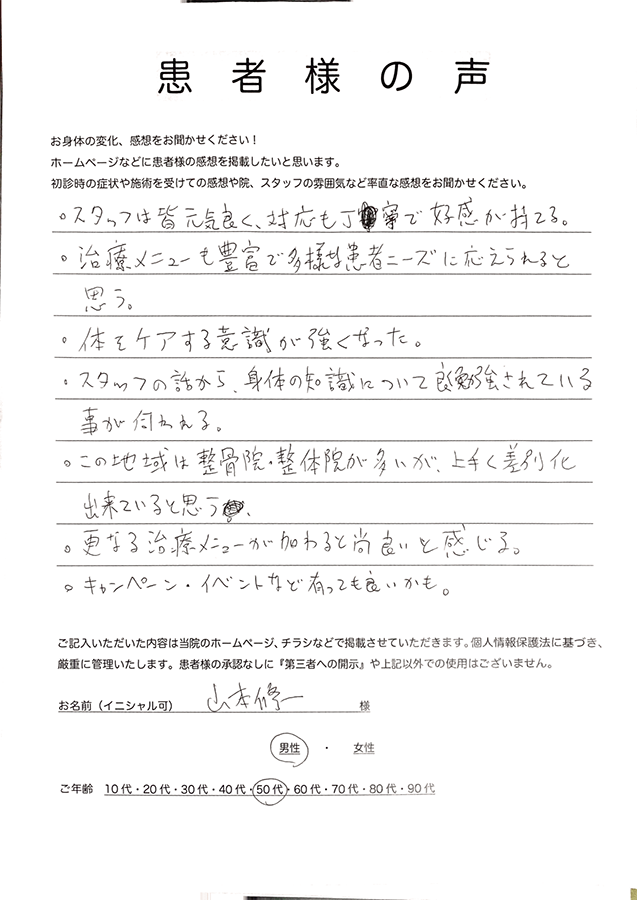 患者様の声
お身体の変化、感想をお聞かせください！
ホームページなどに患者様の感想を掲載したいと思います。
初診時の症状や施術を受けての感想や院、スタッフの雰囲気など率直な感想をお聞かせください。
。スタッフは皆元気良く、対応も丁寧で好感が持てる。
。治療メニューも豊富で多様な患者ニーズに応えられると
思う。
・体をケアする意識が強くなった。
・スタッフの話から、身体の知識について良く勉強されている
事が伺われる。
。この地域は整骨院・整体院が多いが、上手く差別化
出来ていると思う
。更なる治療メニューが加わると尚良いと感じる。
。キャンペーン・イベントなど有っても良いかも。
ご記入いただいた内容は当院のホームページ、チラシなどで掲載させていただきます。個人情報保護法に基づき、
厳重に管理いたします。患者様の承認なしに『第三者への開示』や上記以外での使用はございません。
お名前（イニシャル可） 山本修一 様
男性 ・ 女性
ご年齢 10代・20代・30代・40代・50代・60代・70代・80代・90代